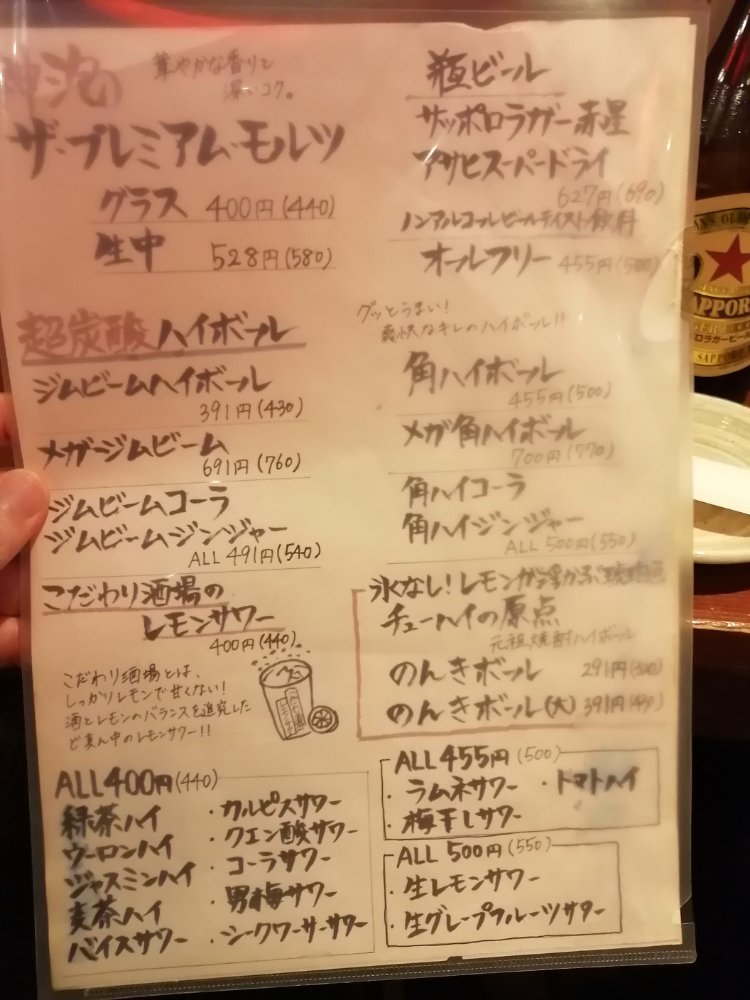 神泡の
華やかな香りと
深いコク。
ザ・プレミアム・モルツ
グラス 400円(440)
生中 528円(580)
瓶ビール
サッポロラガー赤星
アサヒスーパードライ
627円(690)
ノンアルコールビールテイスト飲料
オールフリー 455円(500)
超炭酸ハイボール
ジムビームハイボール
391円(430)
メガジムビーム
691円(760)
ジムビームコーラ
ジムビームジンジャー
ALL 491円(540)
グッとうまい!
爽快なキレのハイボール!!
角ハイボール
455円(500)
メガ角ハイボール
700円(770)
角ハイコーラ
角ハイジンジャー
ALL 500円(550)
こだわり酒場の
レモンサワー
400円(440)
こだわり酒場とは、
しっかりレモンで甘くない!
酒とレモンのバランスを追究した
ど真ん中のレモンサワー!!
氷なし!レモンが浮かぶ
チューハイの原点
元祖焼酎ハイボール
のんきボール 291円(320)
のんきボール(大) 391円(430)
ALL400円(440)
緑茶ハイ
ウーロンハイ
ジャスミンハイ
麦茶ハイ
バイスサワー
・カルピスサワー
・クエン酸サワー
・コーラサワー
・男梅サワー
・シークワーサーサワー
ALL455円(500)
・ラムネサワー ・トマトハイ
・梅干しサワー
ALL 500円(550)
・生レモンサワー
・生グレープフルーツサワー
SAPPORO
ロラガービール
SAPPORO